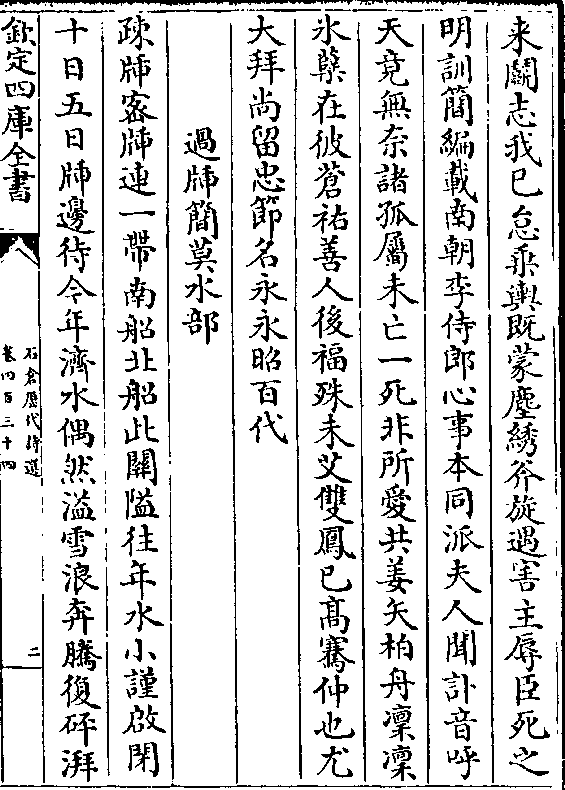 来鬭志我已怠乗輿既蒙塵綉斧旋遇害主辱臣死之
明訓簡編載南朝李侍郎心事本同派夫人聞訃音呼
天竟無奈諸孤屬未亡一死非所愛共姜矢柏舟凜凜
氷蘗在彼蒼祐善人後福殊未艾雙鳳已髙騫仲也尤
大拜尚留忠節名永永昭百代
過牐簡莫水部
疎牐密牐連一帶南船北船此關隘往年水小謹啟閉
十日五日牐邊待今年濟水偶然溢雪浪奔騰復砰湃
欽定四庫全書
石倉歷代詩選
卷四百三十四
二